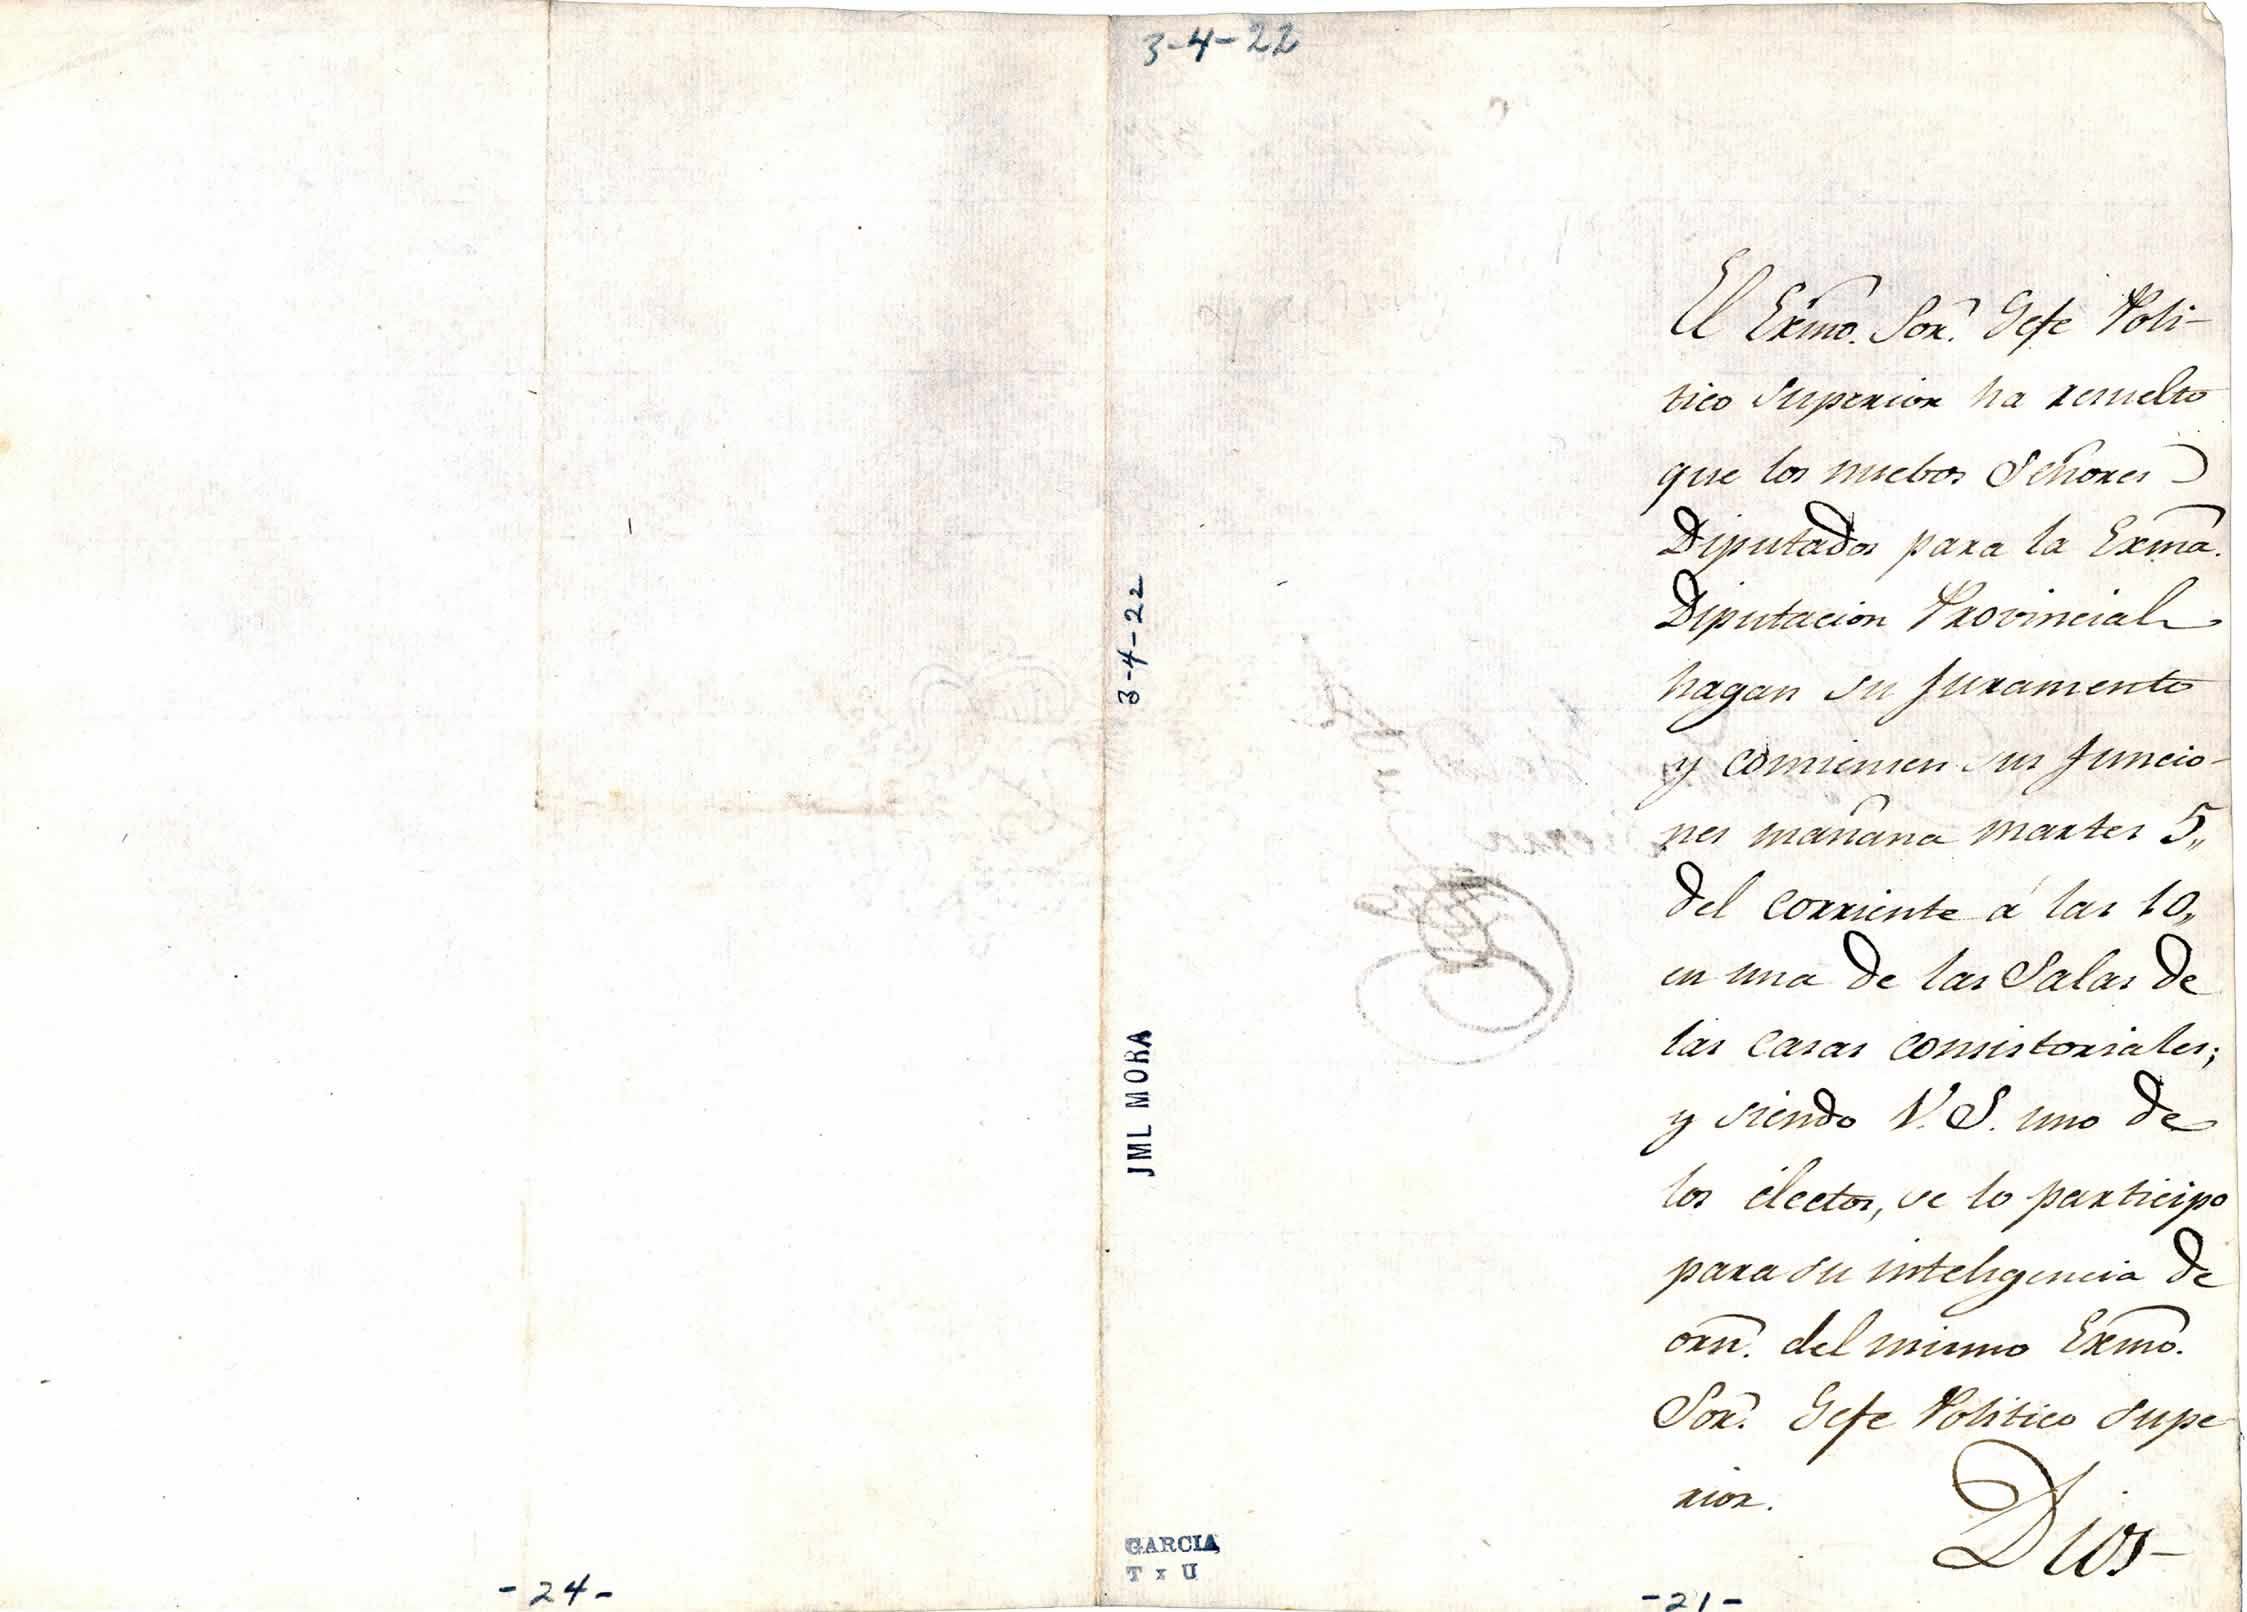 3-4-22
El Exmo. Sor. Gefe Poli-
tico Superior ha resuelto
que los nuebos Señores
Diputados para la Exma.
Diputacion Provincial
hagan su Juramento
y comiensen sus funcio-
nes mañana martes 5,,
del corriente á las 10,,
en una de las Salas de
las casas consistoriales;
y siendo V. S. uno de
los électos, se lo participo
para su inteligencia de
orn. del mismo Exmo.
Sor. Gefe Politico Supe
rior.
Dios-
3-4-22
JML MORA
GARCIA
-24-
-21-